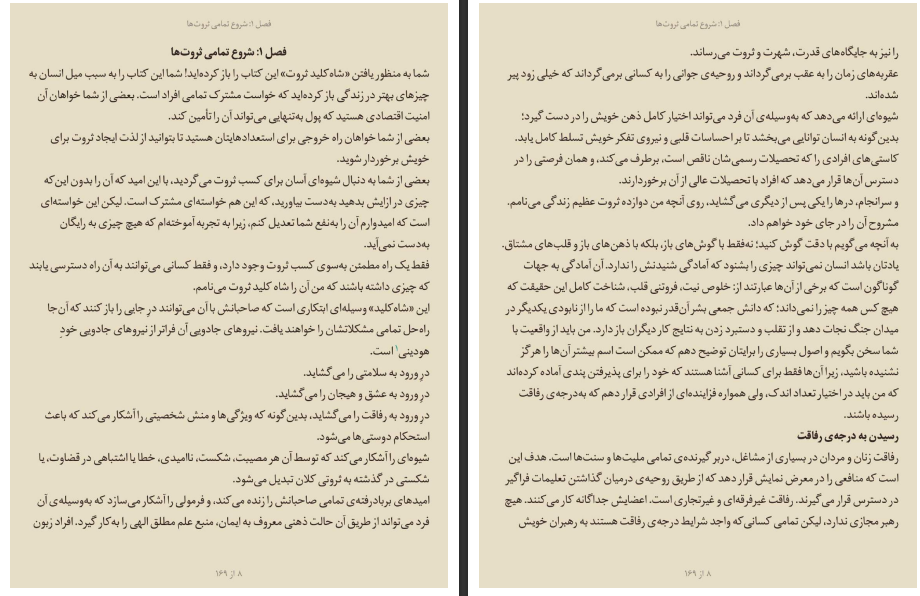 فصل ۱: شروع تمامی ثروت‌ها
فصل ۱: شروع تمامی ثروت‌ها
شما به منظور یافتن «شاه‌کلید ثروت» این کتاب را باز کرده‌اید! شما این کتاب را به سبب میل انسان به
چیزهای بهتر در زندگی باز کرده‌اید که خواست مشترک تمامی افراد است. بعضی از شما خواهان آن
امنیت اقتصادی هستید که پول به‌تنهایی می‌تواند آن را تأمین کند.
بعضی از شما خواهان راه خروجی برای استعدادهایتان هستید تا بتوانید از لذت ایجاد ثروت برای
خویش برخوردار شوید.
بعضی از شما به دنبال شیوه‌ای آسان برای کسب ثروت می‌گردید، با این امید که آن را بدون این‌که
چیزی در ازایش بدهید به‌دست بیاورید، که این هم خواسته‌ای مشترک است. لیکن این خواسته‌ای
است که امیدوارم آن را به‌نفع شما تعدیل کنم، زیرا به تجربه آموخته‌ام که هیچ چیزی به رایگان
به‌دست نمی‌آید.
فقط یک راه مطمئن به‌سوی کسب ثروت وجود دارد، و فقط کسانی می‌توانند به آن راه دسترسی یابند
که چیزی داشته باشند که من آن را شاه کلید ثروت می‌نامم.
این «شاه‌کلید» وسیله‌ای ابتکاری است که صاحبانش با آن می‌توانند درِ جایی را باز کنند که آن‌جا
راه‌حل تمامی مشکلاتشان را خواهند یافت. نیروهای جادویی آن فراتر از نیروهای جادویی خودِ
هودینی۱ است.
درِ ورود به سلامتی را می‌گشاید.
درِ ورود به عشق و هیجان را می‌گشاید.
درِ ورود به رفاقت را می‌گشاید، بدین‌گونه که ویژگی‌ها و منش شخصیتی را آشکار می‌کند که باعث
استحکام دوستی‌ها می‌شود.
شیوه‌ای را آشکار می‌کند که توسط آن هر مصیبت، شکست، ناامیدی، خطا یا اشتباهی در قضاوت، یا
شکستی در گذشته به ثروتی کلان تبدیل می‌شود.
امیدهای بربادرفته‌ی تمامی صاحبانش را زنده می‌کند، و فرمولی را آشکار می‌سازد که به‌وسیله‌ی آن
فرد می‌تواند از طریق آن حالت ذهنی معروف به ایمان، منبع علم مطلق الهی را به‌کار گیرد. افراد زبون
۸ از ۱۶۹
فصل ۱: شروع تمامی ثروت‌ها
را نیز به جایگاه‌های قدرت، شهرت و ثروت می‌رساند.
عقربه‌های زمان را به عقب برمی‌گرداند و روحیه‌ی جوانی را به کسانی برمی‌گرداند که خیلی زود پیر
شده‌اند.
شیوه‌ای ارائه می‌دهد که به‌وسیله‌ی آن فرد می‌تواند اختیار کامل ذهن خویش را در دست گیرد؛
بدین‌گونه به انسان توانایی می‌بخشد تا بر احساسات قلبی و نیروی تفکر خویش تسلط کامل یابد.
کاستی‌های افرادی را که تحصیلات رسمی‌شان ناقص است، برطرف می‌کند، و همان فرصتی را در
دسترس آن‌ها قرار می‌دهد که افراد با تحصیلات عالی از آن برخوردارند.
و سرانجام، درها را یکی پس از دیگری می‌گشاید، روی آنچه من دوازده ثروت عظیم زندگی می‌نامم.
مشروح آن را در جای خود خواهم داد.
به آنچه می‌گویم با دقت گوش کنید؛ نه‌فقط با گوش‌های باز، بلکه با ذهن‌های باز و قلب‌های مشتاق.
یادتان باشد انسان نمی‌تواند چیزی را بشنود که آمادگی شنیدنش را ندارد. آن آمادگی به جهات
گوناگون است که برخی از آن‌ها عبارتند از: خلوص نیت، فروتنی قلب، شناخت کامل این حقیقت که
هیچ کس همه چیز را نمی‌داند؛ که دانش جمعی بشر آن‌قدر نبوده است که ما را از نابودی یکدیگر در
میدان جنگ نجات دهد و از تقلب و دستبرد زدن به نتایج کار دیگران باز دارد. من باید از واقعیت با
شما سخن بگویم و اصول بسیاری را برایتان توضیح دهم که ممکن است اسم بیشتر آن‌ها را هرگز
نشنیده باشید، زیرا آن‌ها فقط برای کسانی آشنا هستند که خود را برای پذیرفتن پندی آماده کرده‌اند
که من باید در اختیار تعداد اندک، ولی همواره فزاینده‌ای از افرادی قرار دهم که به‌درجه‌ی رفاقت
رسیده باشند.
رسیدن به درجه‌ی رفاقت
رفاقت زنان و مردان در بسیاری از مشاغل، دربر گیرنده‌ی تمامی ملیت‌ها و سنت‌ها است. هدف این
است که منافعی را در معرض نمایش قرار دهد که از طریق روحیه‌ی درمیان گذاشتن تعلیمات فراگیر
در دسترس قرار می‌گیرند. رفاقت غیرفرقه‌ای و غیرتجاری است. اعضایش جداگانه کار می‌کنند. هیچ
رهبر مجازی ندارد، لیکن تمامی کسانی‌که واجد شرایط درجه‌ی رفاقت هستند به رهبران خویش
۸ از ۱۶۹